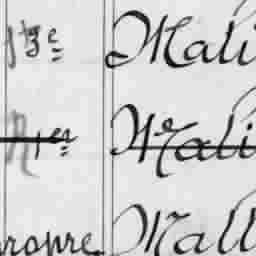 3e Mali
1er Mali
propre Mall